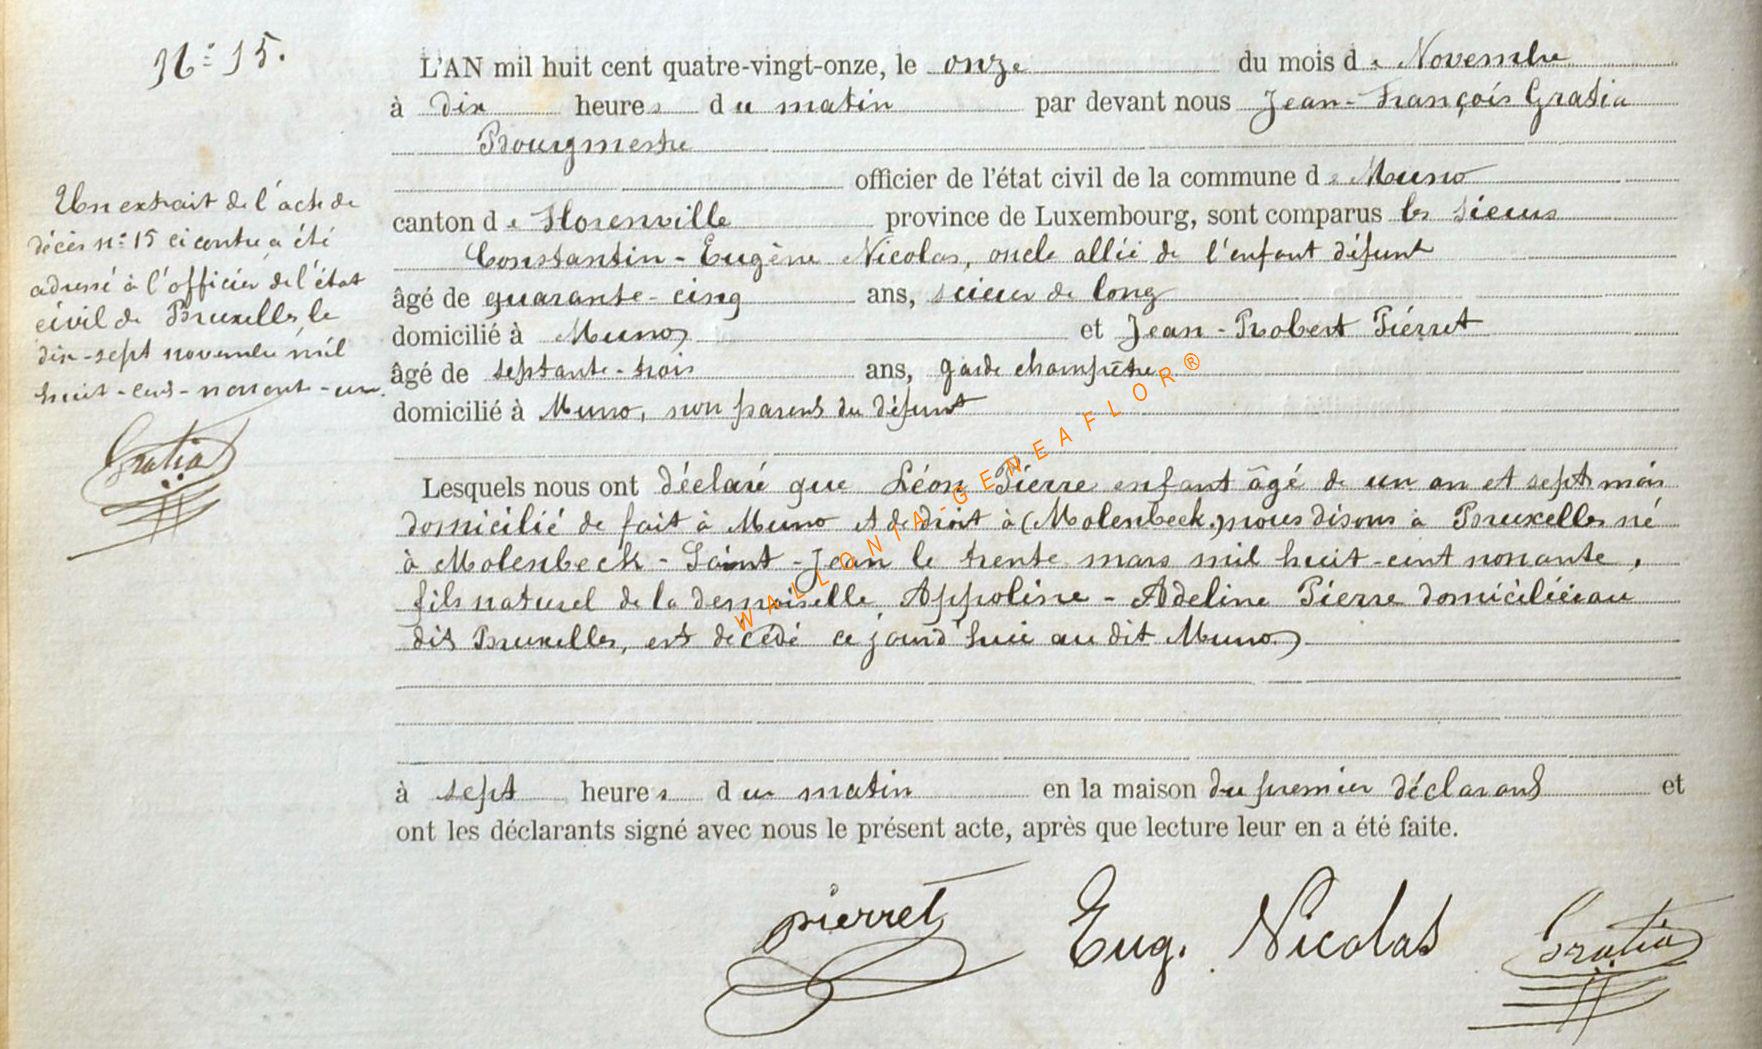 N° 15.
L'AN mil huit cent quatre-vingt-onze, le onze du mois de Novembre
à dix heures du matin par devant nous Jean-François Gratia
Bourgmestre
officier de l'état civil de la commune de Muno
canton de Florenville province de Luxembourg, sont comparus les sieurs
Constantin-Eugène Nicolas, oncle allié de l'enfant défunt
âgé de quarante-cinq ans, scieur de long
domicilié à Muno, et Jean-Robert Piérret
âgé de septante-trois ans, garde champêtre
domicilié à Muno, non parent du défunt
Lesquels nous ont déclaré que Léon Pierre enfant âgé de un an et sept mois
domicilié de fait à Muno et de droit à (Molenbeck.) nous disons à Bruxelles né
à Molenbeck-Saint-Jean le trente mars mil huit-cent nonante,
fils naturel de la demoiselle Appoline-Adeline Pierre domiciliée au
dit Bruxelles, est décédé ce jourd'hui au dit Muno
à sept heures du matin en la maison du premier déclarant et
ont les déclarants signé avec nous le présent acte, après que lecture leur en a été faite.
pierret Eug. Nicolas Gratia
Un extrait de l'acte de
décès n° 15 ci contre a été
adressé à l'officier de l'état
civil de Bruxelles le
dix-sept novembre mil
huit-cent-nonante-un.
Gratia
WALLONIA-GENEAFLOR®